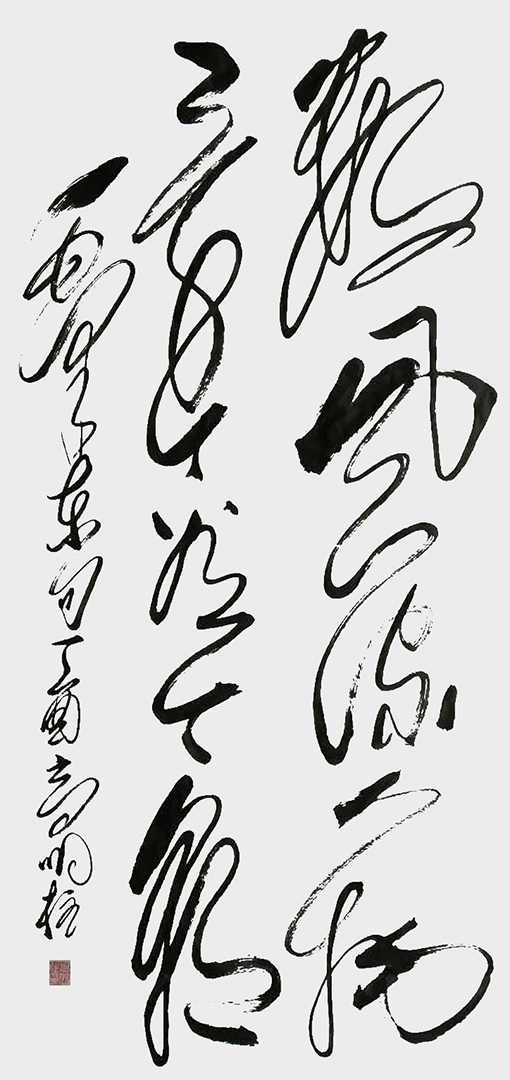 数风流人物
还看今朝
毛泽东句丁酉高明